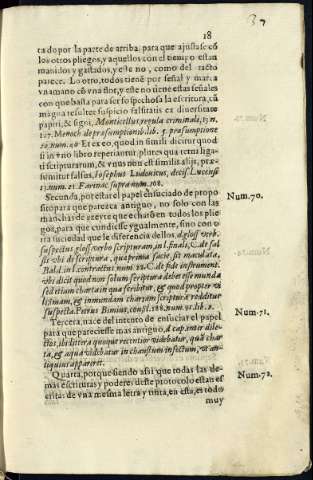 37
18
tado por la parte de arriba, para que ajustase cō
los otros pliegos, y aquellos con el tiempo estan
manidos y gastados, y este no, como del tacto
parece. Lo otro, todos tienē por señal y marca
vna mano cō vna flor, y este no tiene estas señales
con que basta para ser sospechosa la escritura, cū
magna resultet suspicio falsitatis ex diversitate
papiri, & signi, Monticellus, regula criminali, 13. n.
127. Menoch de præsumptionib. lib. 5. præsumptione
20. num. 40. Et ex eo, quod in simili dicitur quod
si in vno libro reperiantur, plures quaterna liga-
ti scripturarum, & vnus non est similis alijs, præ-
sumitur falsus, Ioseplus Ludouicus, decis. Lucensi
13. num. 21. Farinac. supra num. 108.
Secunda, por estar el papel ensuciado de propo
sito para que parezca antiguo, no solo con las
manchas de azeyte que echarō en todos los plie
gos, para que cundiesse ygualmente, sino con o
tra suciedad que le diferencia de los
Num. 70.
Bald. in l. contractus num. 22. C. de fide instrument.
vbi dicit quod non solum scriptura debet esse munda
sed etiam charta in qua scribitur, & quod propter vi
lissimam, & inmundam chartam scriptura redditur
suspecta. Petrus Bimius, consl. 188. num. 91. lib. 2.
Tercera, nace del intento de ensuciar el papel
Num. 71.
para que pareciesse mas antiguo, d. cap. inter dile-
ctos, ibi littera quæque recentior videbatur, quā char
ta, & aqua videbatur in chaustum infectum, vt an-
tiquius appareret.
Quarta, porque siendo assi que todas las de-
Num. 72.
mas escrituras y poderes deste protocolo estan es
critas de vna mesma letra y tinta, en esta, es todo
muy